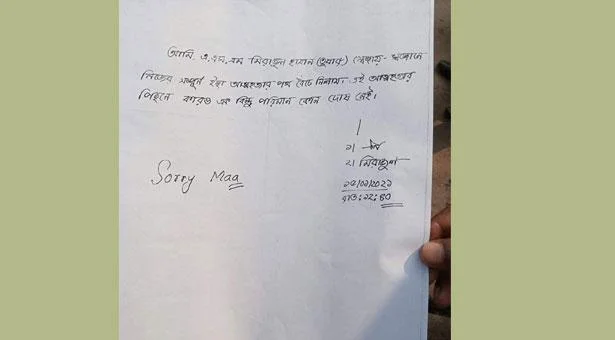 আমি মিরাজুল হাসান (তুষার) স্বেচ্ছায় - স্বজ্ঞানে
নিজের সম্পূর্ন ইচ্ছা আত্মহত্যার পথ বেঁচে নিলাম। এই আত্মহত্যার
পিছনে কারও এক বিন্দু পরিমান কোন দোষ নেই।
১।
২। মিরাজুল
Sorry Maa
রাত:১২:৪০